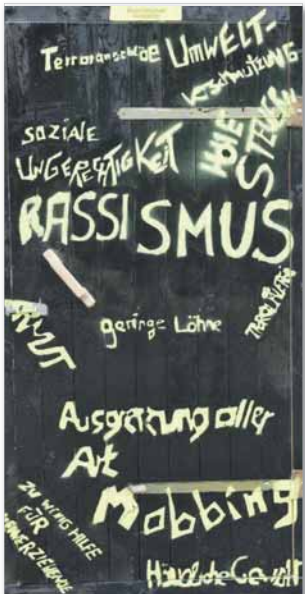 Terroranschläge UMWELT-
VERSCHMUTZUNG
SOZIALE
UNGERECHTIGKEIT
HOHE
STEUERN
RASSISMUS
ARMUT
geringe Löhne
Ausgrenzung aller
Art
Mobbing
ZU WENIG HILFE
FÜR
Häusliche Gewalt